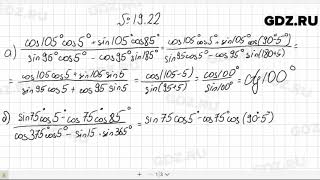 GDZ.RU
№19.22
а) cos105°cos5° + sin105°cos85° / sin95°cos5° - cos95°sin185° = cos105°cos5° + sin105°cos(90°-5°) / sin95cos5° - cos95°sin(180+5) =
= cos105cos5 + sin105 sin5 / sin95 cos5 + cos95 sin5 = cos(105-5) / sin(95+5) = cos100° / sin100° = ctg100°
б) sin75°cos5° - cos75°cos85° / cos375°cos5° - sin15·sin365° = sin75cos5° - cos75°cos(90°-5°)
GDZ.RU